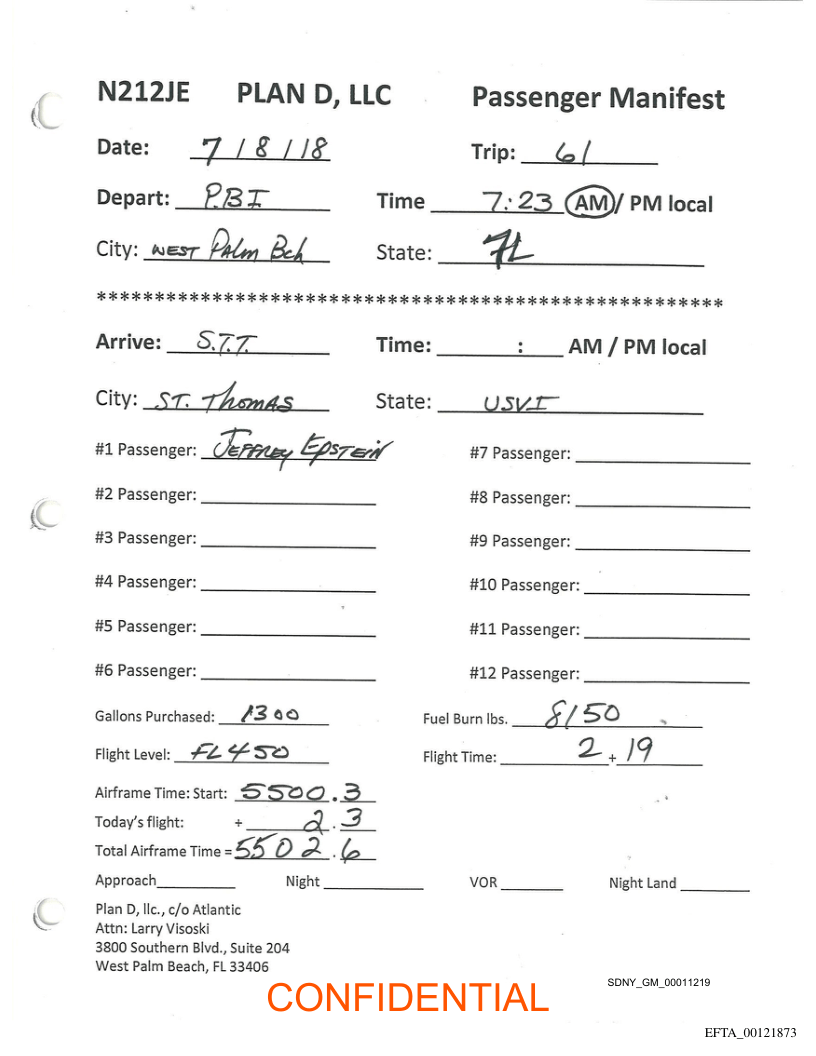 N212JE PLAN D, LLC Passenger Manifest
Date: 7 / 8 / 18 Trip: 61
Depart: P.B.I Time 7:23 AM / PM local
City: WEST Palm Bch State: FL
******************************************************
Arrive: S.T.T. Time: : AM / PM local
City: ST. Thomas State: USVI
#1 Passenger: Jeffrey Epstein #7 Passenger:
#2 Passenger: #8 Passenger:
#3 Passenger: #9 Passenger:
#4 Passenger: #10 Passenger:
#5 Passenger: #11 Passenger:
#6 Passenger: #12 Passenger:
Gallons Purchased: 1300 Fuel Burn lbs. 8150
Flight Level: FL450 Flight Time: 2 + 19
Airframe Time: Start: 5500.3
Today's flight: + 2.3
Total Airframe Time = 5502.6
Approach Night VOR Night Land
Plan D, llc., c/o Atlantic
Attn: Larry Visoski
3800 Southern Blvd., Suite 204
West Palm Beach, FL 33406
SDNY_GM_00011219
CONFIDENTIAL
EFTA_00121873